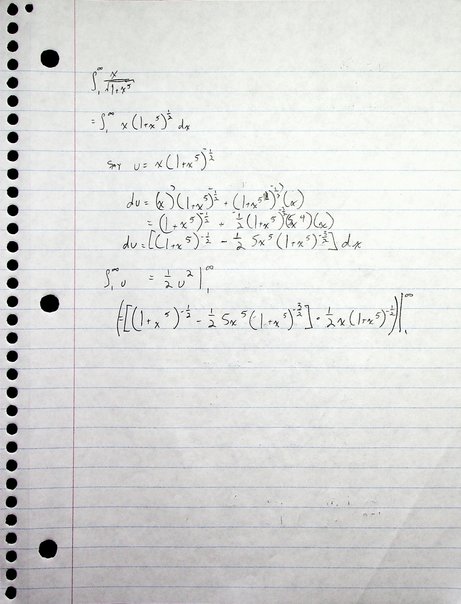 ∫₁^∞ x/√(1+x⁵)
= ∫₁^∞ x(1+x⁵)^(-1/2) dx
Say u = x(1+x⁵)^(-1/2)
du = (x)'(1+x⁵)^(-1/2) + ((1+x⁵)^(-1/2))'(x)
= (1+x⁵)^(-1/2) + -1/2(1+x⁵)^(-3/2)(5x⁴)(x)
du = [(1+x⁵)^(-1/2) - 1/2 5x⁵(1+x⁵)^(-3/2)] dx
∫₁^∞ u = 1/2 u² |₁^∞
(=[(1+x⁵)^(-1/2) - 1/2 5x⁵(1+x⁵)^(-3/2)] · 1/2 x(1+x⁵)^(-1/2))|₁^∞